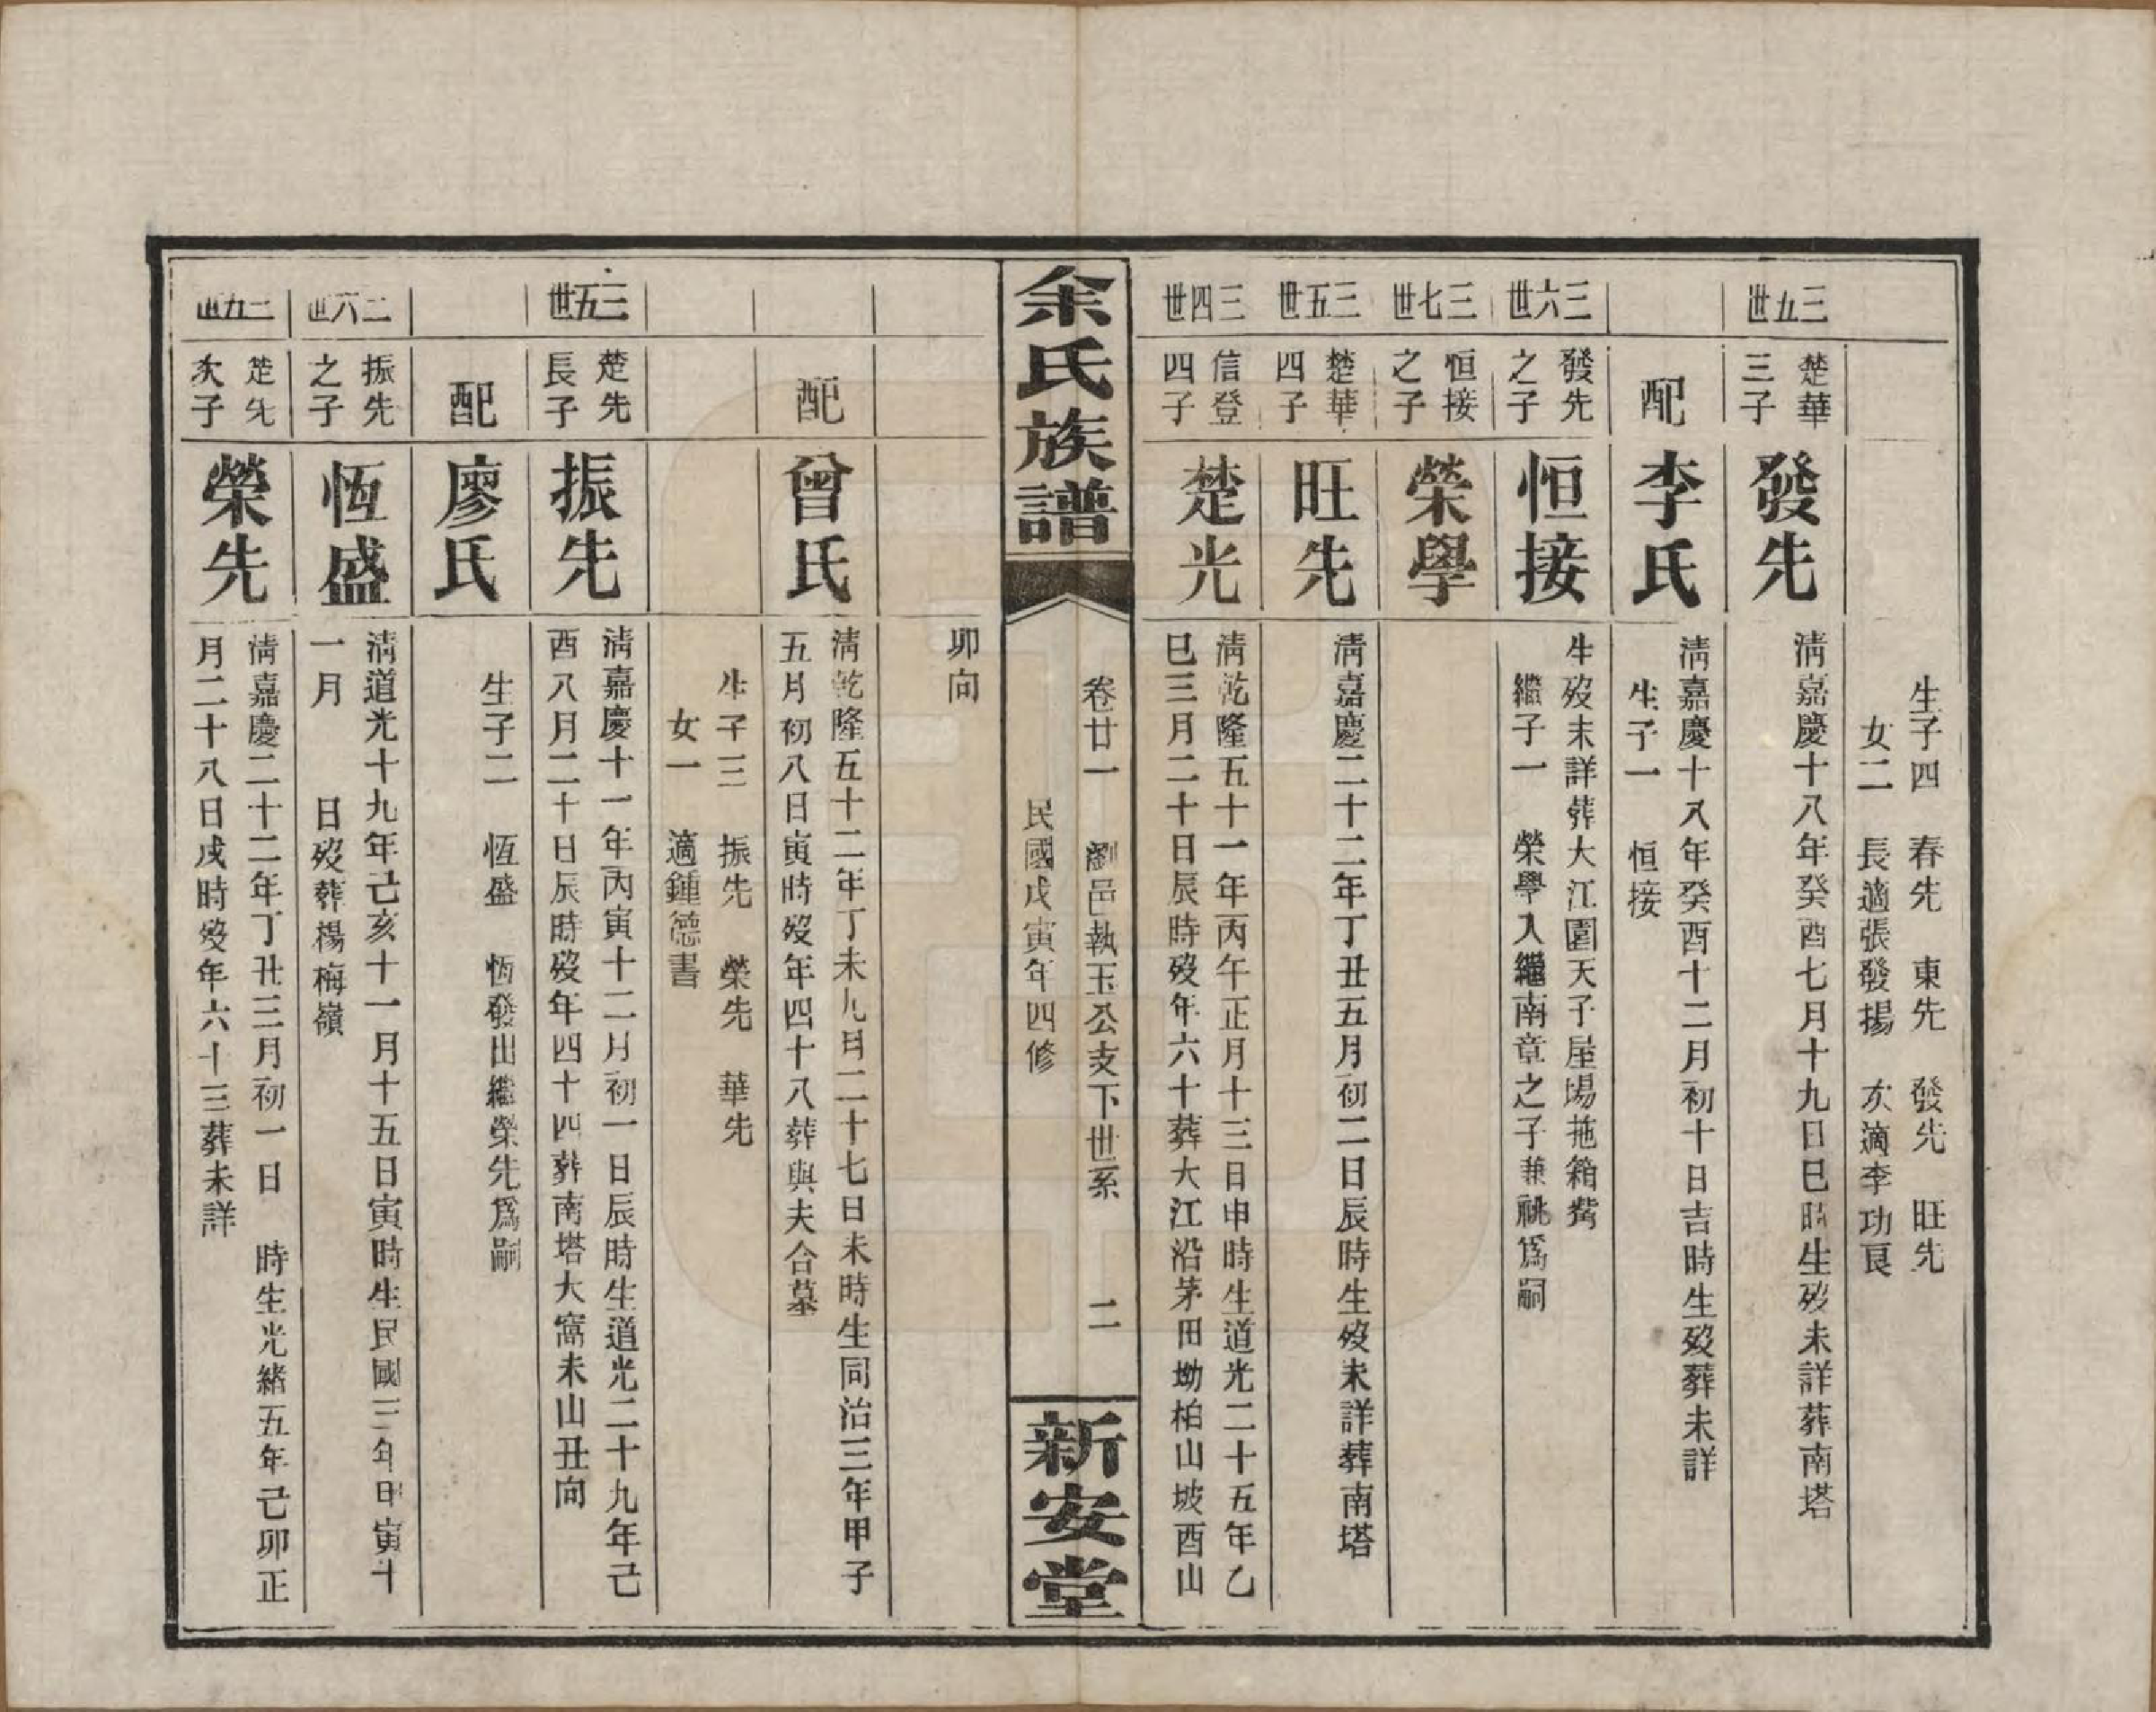 生子四　春先　東先　發先　旺先
女二　長適張發揚　次適李功良
三五世
楚華
三子
發先
淸嘉慶十八年癸酉七月十九日巳時生歿未詳葬南塔
配
李氏
淸嘉慶十八年癸酉十二月初十日吉時生歿葬未詳
生子一　恒接
三六世
發先
之子
恒接
生歿未詳葬大江園天子屋場拖箱觜
繼子一　榮學入繼南章之子兼祧爲嗣
三七世
恒接
之子
榮學
三五世
楚華
四子
旺先
淸嘉慶二十二年丁丑五月初二日辰時生歿未詳葬南塔
三四世
信登
四子
楚光
淸乾隆五十一年丙午正月十三日申時生道光二十五年乙
巳三月二十日辰時歿年六十葬大江沿茅田坳柏山坡酉山
余氏族譜
卷廿一　瀏邑執玉公支下世系　二
民國戊寅年四修
新安堂
卯向
配
曾氏
淸乾隆五十二年丁未九月二十七日未時生同治三年甲子
五月初八日寅時歿年四十八葬與夫合墓
生子三　振先　榮先　華先
女一　適鍾德書
三五世
楚先
長子
振先
淸嘉慶十一年丙寅十二月初一日辰時生道光二十九年己
酉八月二十日辰時歿年四十四葬南塔大窩未山丑向
配
廖氏
生子二　恆盛　恆發出繼榮先爲嗣
三六世
振先
之子
恆盛
淸道光十九年己亥十一月十五日寅時生民國三年甲寅十
一月　　日歿葬楊梅嶺
三五世
楚先
次子
榮先
淸嘉慶二十二年丁丑三月初一日　時生光緒五年己卯正
月二十八日戌時歿年六十三葬未詳